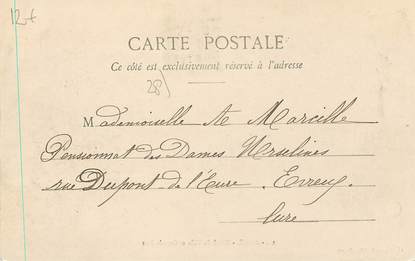 12 €
CARTE POSTALE
Ce côté est exclusivement réservé à l'adresse
28)
Mademoiselle Marcille
Pensionnat des Dames Ursulines
rue Dupont-de-l'Eure. Evreux
Eure